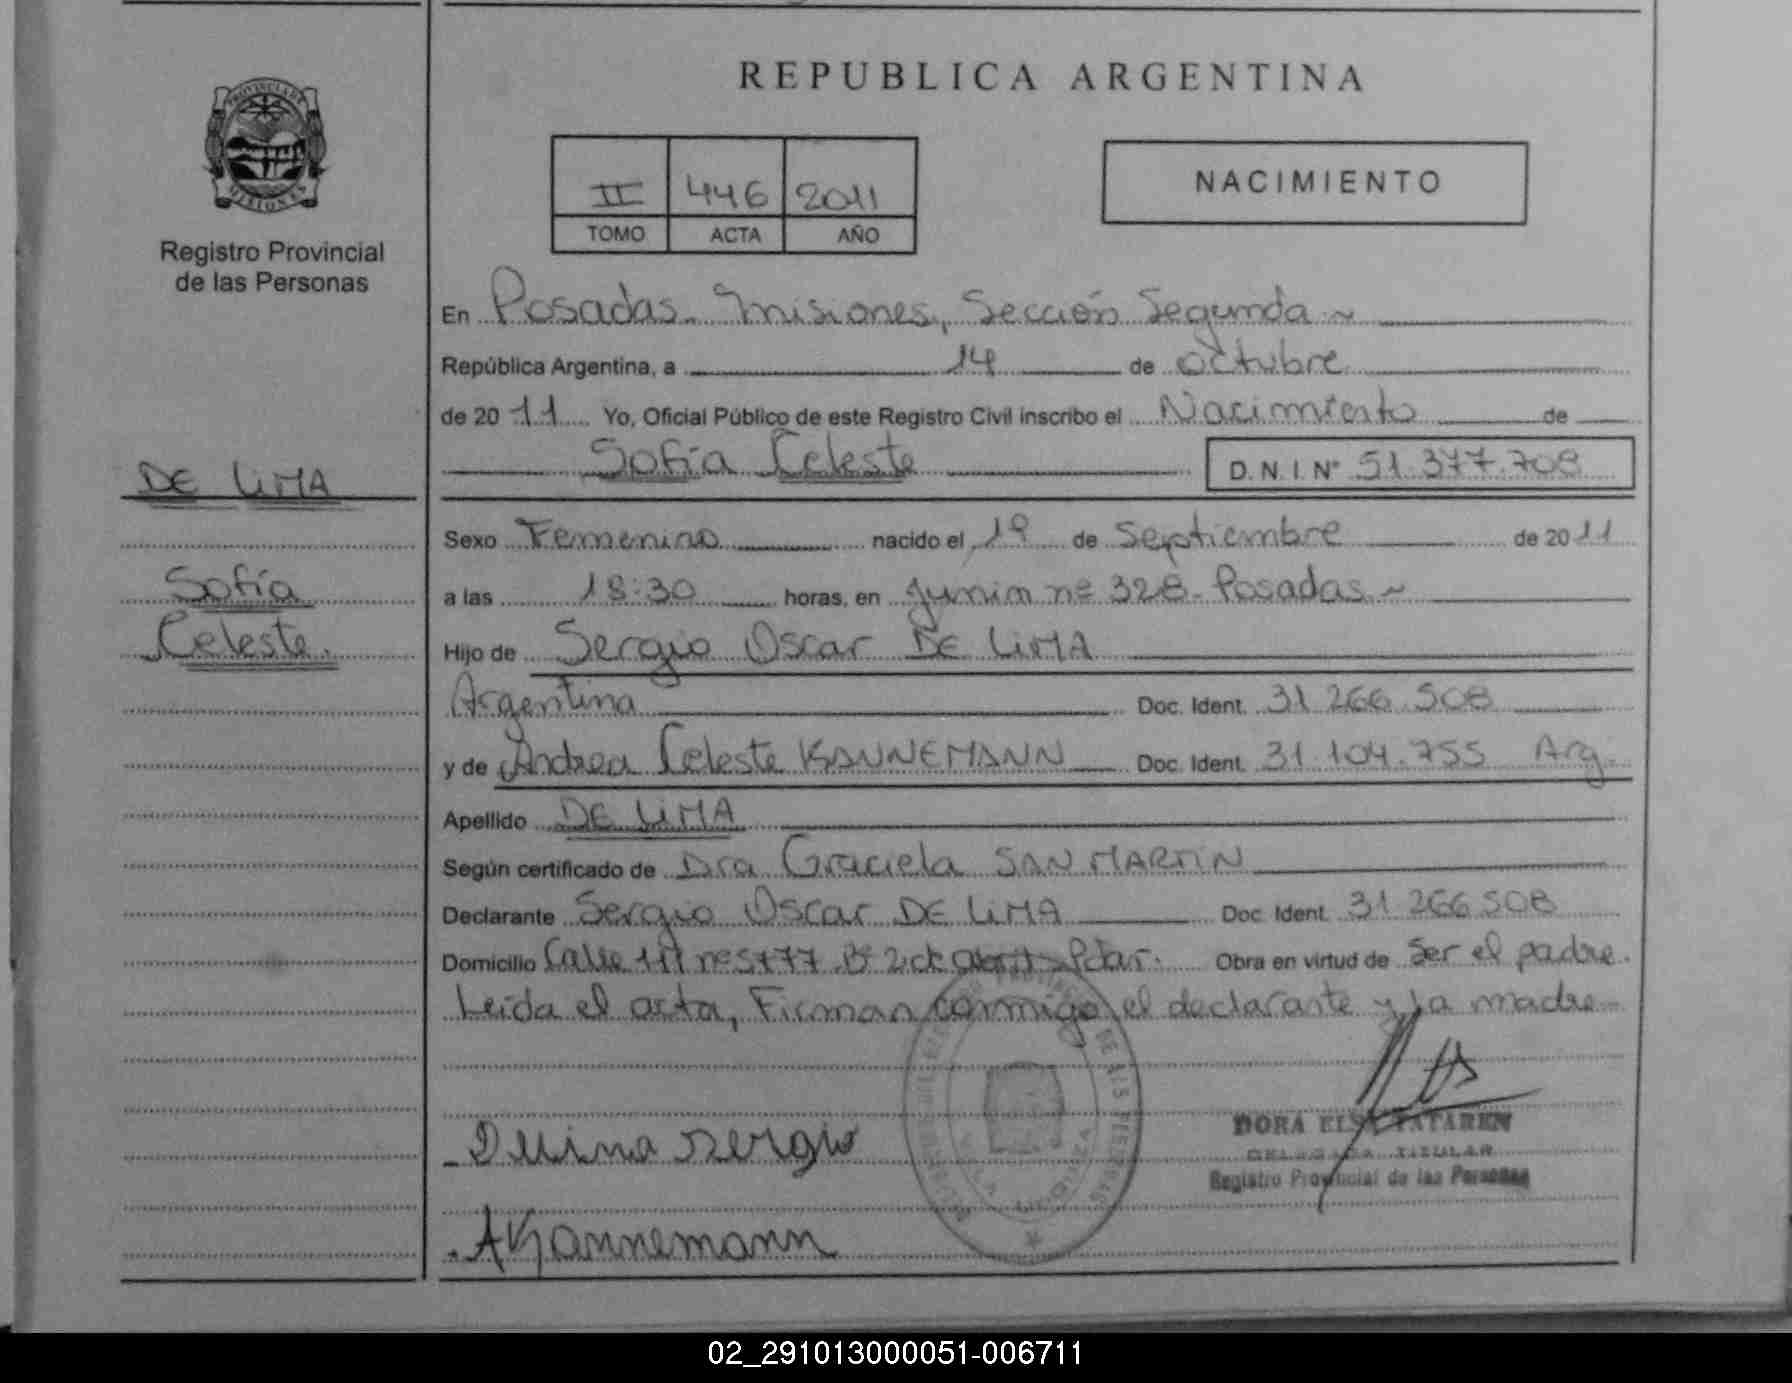 REPUBLICA ARGENTINA
PROVINCIA DE
MISIONES
Registro Provincial
de las Personas
II 446 2011
TOMO ACTA AÑO
NACIMIENTO
En Posadas. Misiones, Sección Segunda ~
República Argentina, a 14 de octubre
de 20 11 Yo, Oficial Público de este Registro Civil inscribo el Nacimiento de
Sofía Celeste D.N.I. Nº 51.377.708
DE LiMA
Sofía
Celeste.
Sexo Femenino nacido el 19 de Septiembre de 20 11
a las 18:30 horas, en Junin nº 328. Posadas ~
Hijo de Sergio Oscar DE LiMA
Argentina Doc. Ident. 31.266.508
y de Andrea Celeste KANNEMANN Doc. Ident. 31.104.755 Arg.
Apellido DE LiMA
Según certificado de Dra Graciela SAN MARTIN
Declarante Sergio Oscar DE LiMA Doc. Ident. 31.266.508
Domicilio Calle nº 5477 Bº 2 de abril Pdas. Obra en virtud de Ser el padre.
Leída el acta, Firman conmigo el declarante y la madre
DORA ELSA TATAREN
DELEGADA TITULAR
Registro Provincial de las Personas
Sergio
AKannemann
02_291013000051-006711